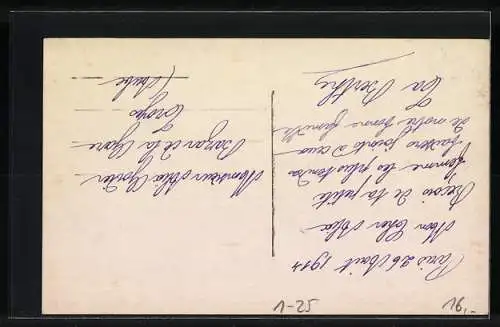 Paris 26 Août 1914
Mon Cher Abba
Reçois de ta petite
femme les plus tendres
baisers joints à ceux
de notre bonne famille
Ta Berthe
Monsieur Abba
Bazar de la Gare
Troyes
(Aube
1-25
16,-